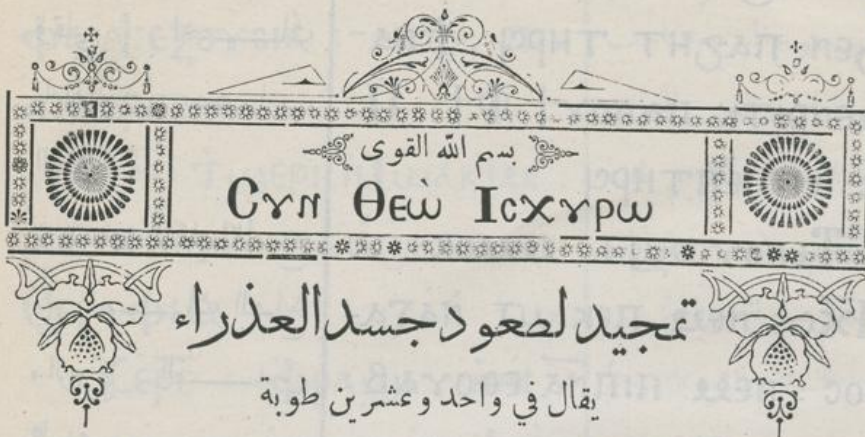 بسم الله القوى
Ⲥⲩⲛ Ⲑⲉⲱ Ⲓⲥⲭⲩⲣⲱ
تمجيد لصعود جسد العذراء
يقال في واحد وعشرين طوبة